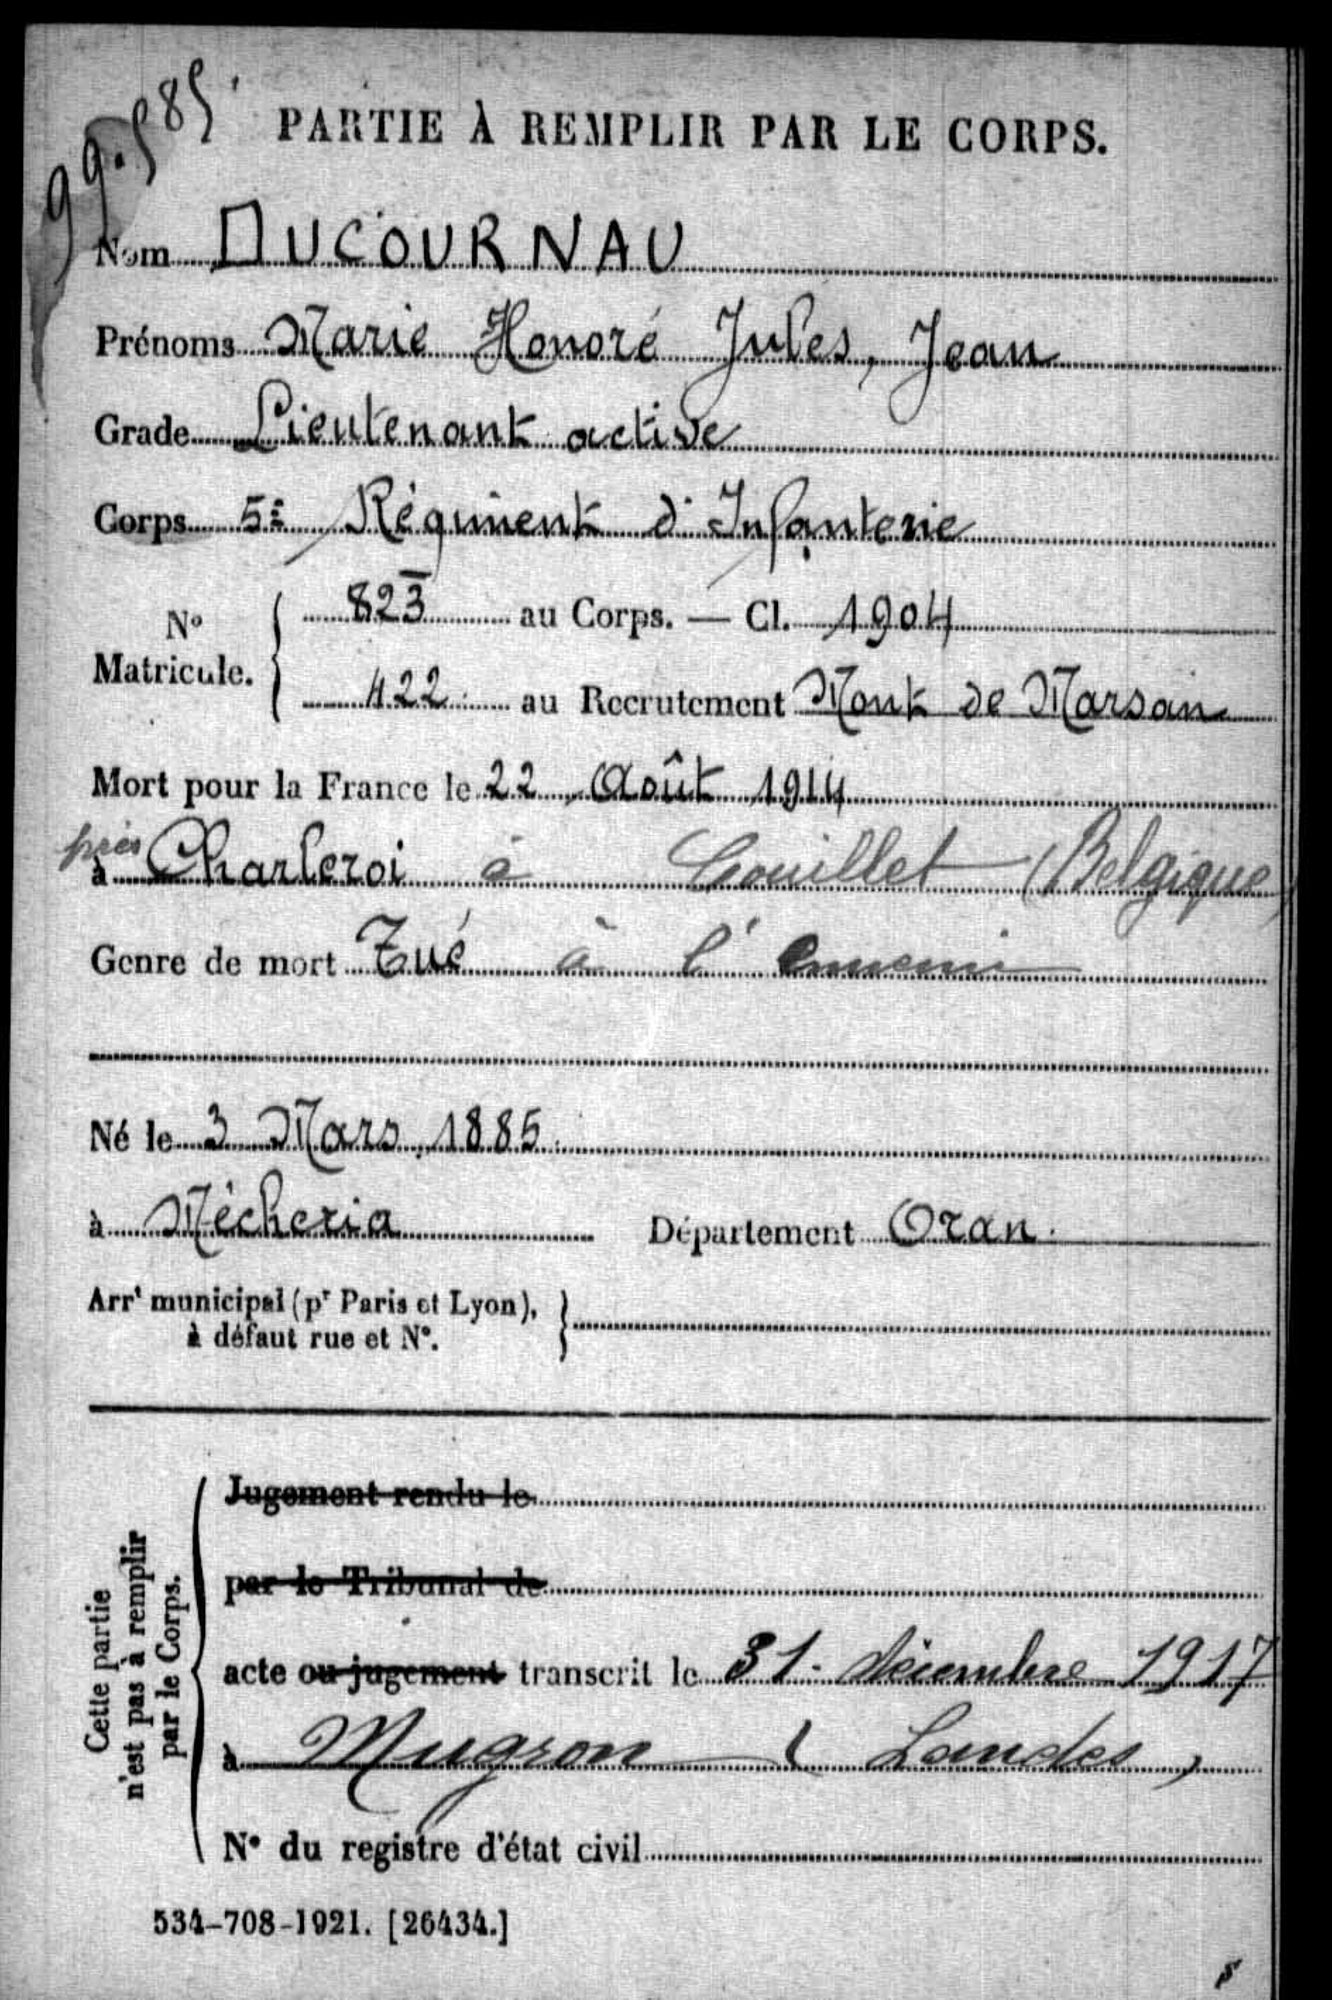 99.585
PARTIE À REMPLIR PAR LE CORPS.
Nom DUCOURNAU
Prénoms Marie Honoré Jules, Jean
Grade Lieutenant active
Corps 5e Régiment d'Infanterie
N° Matricule. { 823 au Corps. — Cl. 1904
422 au Recrutement Mont de Marsan
Mort pour la France le 22 Août 1914
près
à Charleroi à Couillet (Belgique)
Genre de mort Tué à l'ennemi
Né le 3 Mars 1885
à Mécheria Département Oran.
Arrt municipal (pr Paris et Lyon),
à défaut rue et N°. }
Cette partie
n'est pas à remplir
par le Corps.
Jugement rendu le
par le Tribunal de
acte ou jugement transcrit le 31 décembre 1917
à Mugron (Landes)
N° du registre d'état civil
534-708-1921. [26434.]